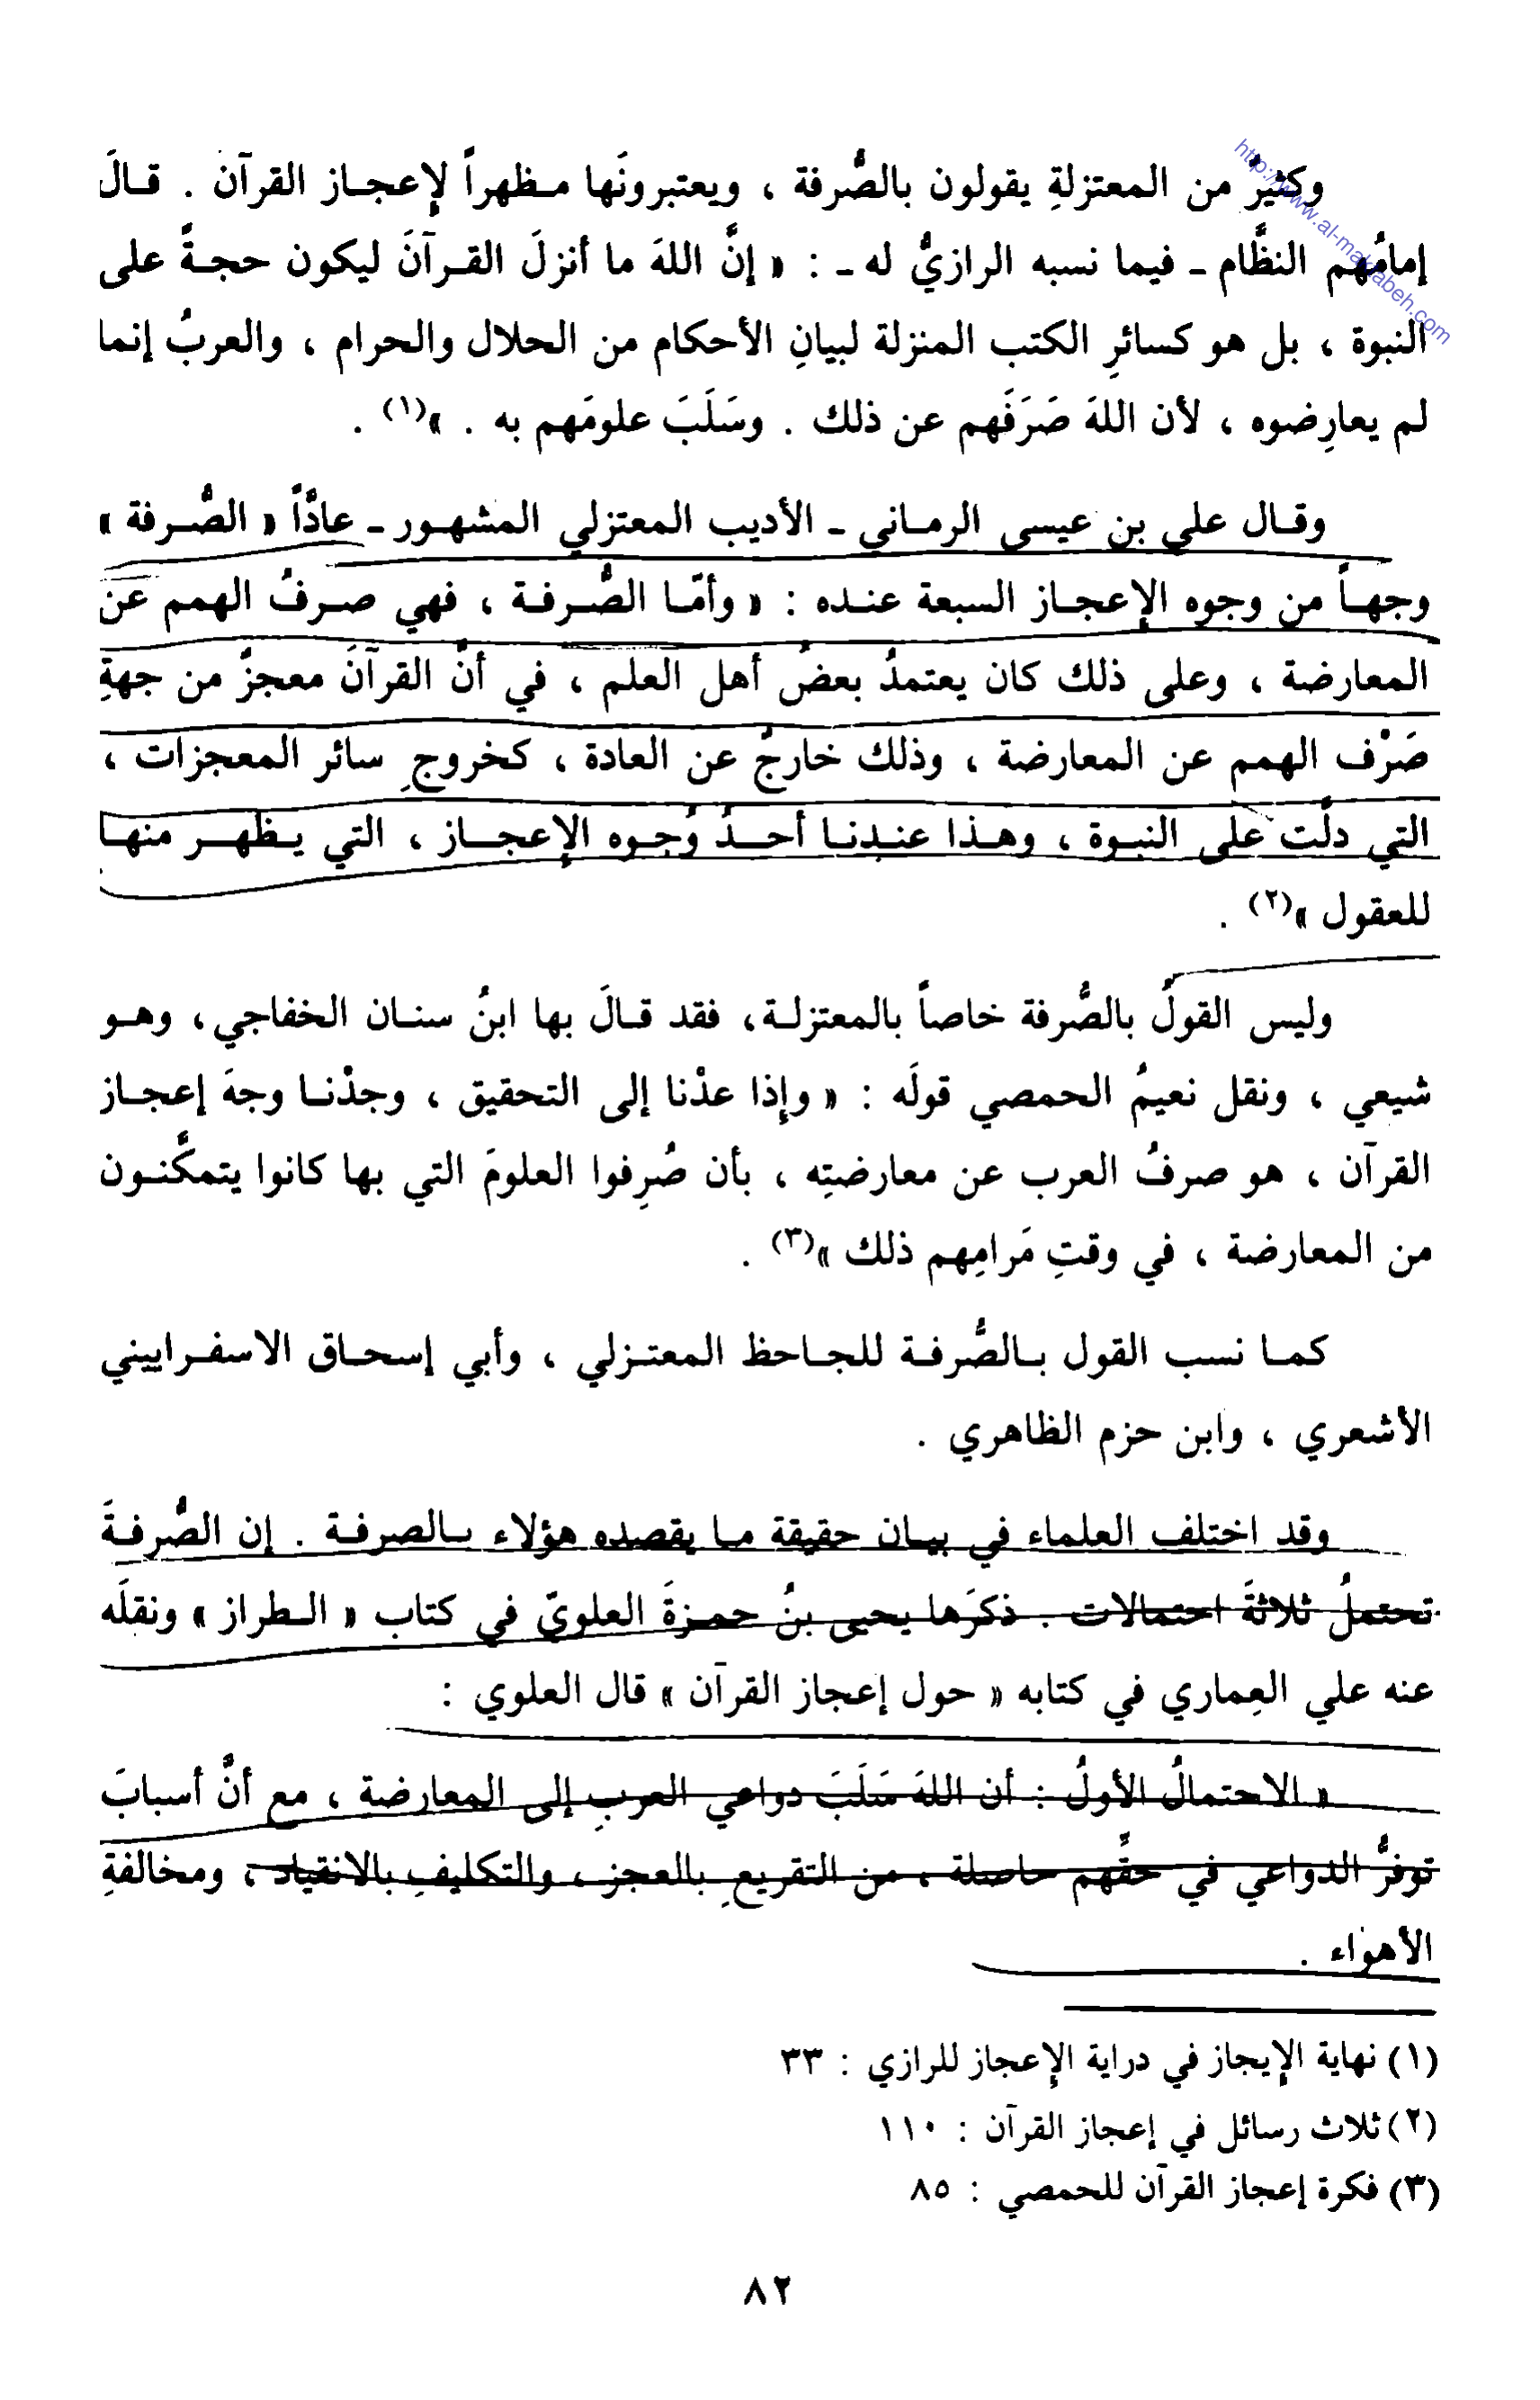 http://www.al-maktabeh.com
وكثيرٌ من المعتزلةِ يقولون بالصُّرفة ، ويعتبرونَها مظهراً لإعجاز القرآن . قالَ
إمامُهم النظَّام ـ فيما نسبه الرازيُّ له ـ : « إنَّ اللهَ ما أنزلَ القرآنَ ليكون حجةً على
النبوة ، بل هو كسائرِ الكتب المنزلة لبيانِ الأحكام من الحلال والحرام ، والعربُ إنما
لم يعارِضوه ، لأن اللهَ صَرَفَهم عن ذلك . وسَلَبَ علومَهم به . »(١) .
وقال علي بن عيسى الرماني ـ الأديب المعتزلي المشهور ـ عادّاً « الصُّرفة »
وجهاً من وجوه الإعجاز السبعة عنده : « وأمّا الصُّرفة ، فهي صرفُ الهمم عن
المعارضة ، وعلى ذلك كان يعتمدُ بعضُ أهل العلم ، في أنَّ القرآنَ معجزٌ من جهةِ
صَرْف الهمم عن المعارضة ، وذلك خارجٌ عن العادة ، كخروجِ سائر المعجزات ،
التي دلَّت على النبوة ، وهذا عندنا أحدُ وُجوه الإعجاز ، التي يظهر منها
للعقول »(٢) .
وليس القولُ بالصُّرفة خاصاً بالمعتزلة، فقد قالَ بها ابنُ سنان الخفاجي، وهو
شيعي ، ونقل نعيمُ الحمصي قولَه : « وإذا عدْنا إلى التحقيق ، وجدْنا وجهَ إعجاز
القرآن ، هو صرفُ العرب عن معارضتِه ، بأن صُرِفوا العلومَ التي بها كانوا يتمكَّنون
من المعارضة ، في وقتِ مَرامِهم ذلك »(٣) .
كما نسب القول بالصُّرفة للجاحظ المعتزلي ، وأبي إسحاق الاسفراييني
الأشعري ، وابن حزم الظاهري .
وقد اختلف العلماء في بيان حقيقة ما يقصده هؤلاء بالصرفة . إن الصُّرفةَ
تحتملُ ثلاثةَ احتمالات . ذكرَها يحيى بنُ حمزةَ العلويّ في كتاب « الطراز » ونقلَه
عنه علي العِماري في كتابه « حول إعجاز القرآن » قال العلوي :
« الاحتمالُ الأولُ : أن اللهَ سَلَبَ دواعي العربِ إلى المعارضة ، مع أنَّ أسبابَ
توفرُّ الدواعي في حقِّهم حاصلة ، من التقريعِ بالعجز ، والتكليفِ بالانقياد ، ومخالفةِ
الأهواء .
(١) نهاية الإيجاز في دراية الإعجاز للرازي : ٣٣
(٢) ثلاث رسائل في إعجاز القرآن : ١١٠
(٣) فكرة إعجاز القرآن للحمصي : ٨٥
٨٢